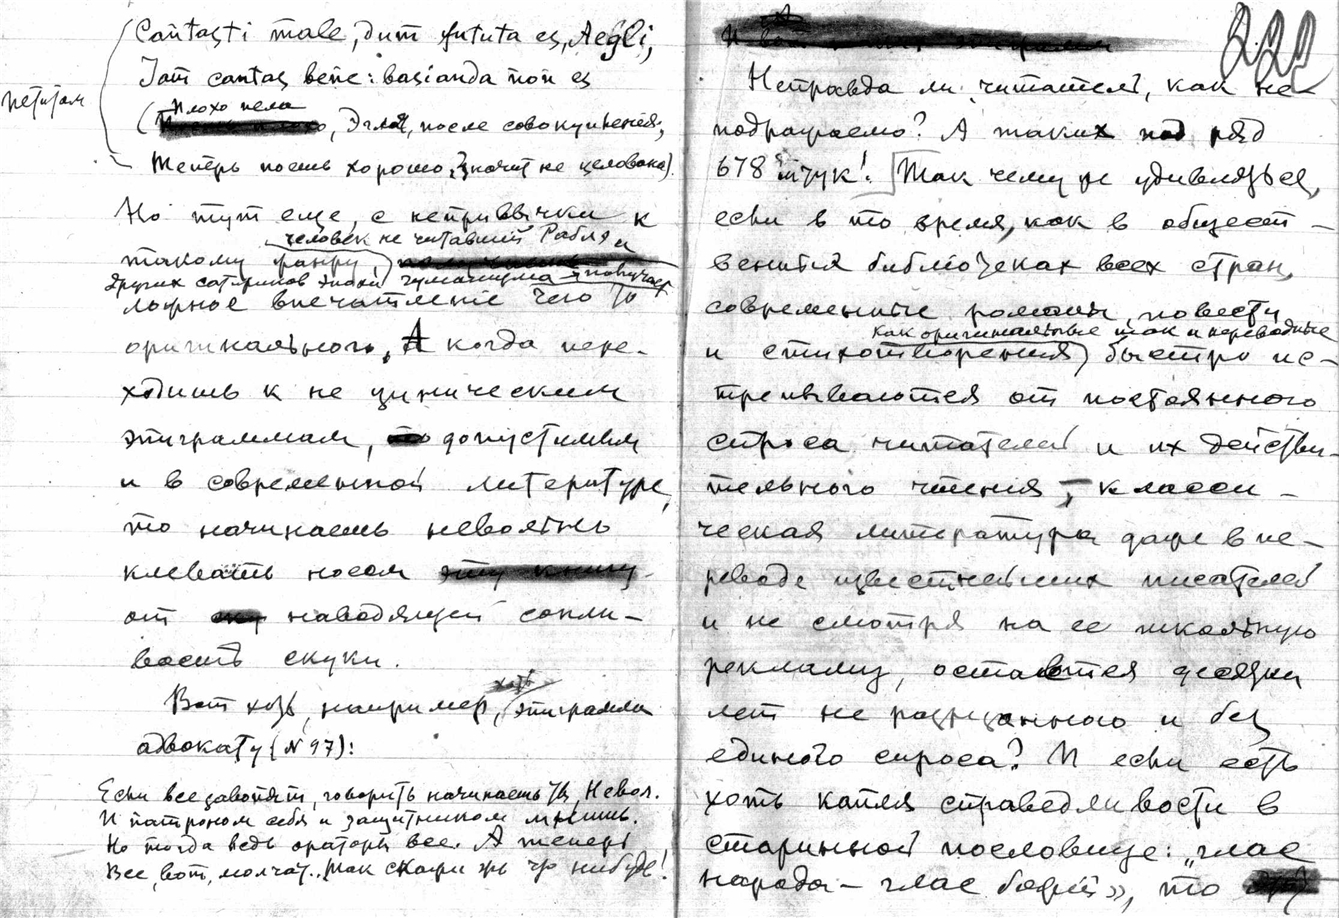 Cantasti male, dum fututa es, Aegli,
Jam cantas bene: basianda non es
петитом
Плохо пела
(, Эгля, после совокупления,
Теперь поешь хорошо, значит не целована).
Но тут еще, с непривычки к
человек не читавший Рабля и
такому жанру
других сатириков эпохи гуманизма получает
ложное впечатление чего то
оригинального. А когда пере-
ходишь к не циническим
эпиграммам, допустимым
и в современной литературе,
то начинаешь невольно
клевать носом эту книгу
от наводящей сонли-
вость скуки.
хоть
Вот хоть, например, эпиграмма
адвокату (№ 97):
Если все завопят, говорить начинаешь ты, Невол.
И патроном себя и защитником мнишь.
Но тогда ведь ораторы все. А теперь
Все, вот, молчат.. Так скажи же что нибудь!
222
И вот
Неправда ли, читатель, как не-
подражаемо? А таких под ряд
678 штук! Так чему же удивляться,
если в то время, как в общест-
венных библиотеках всех стран,
современные романы, повести
как оригинальные так и переводные
и стихотворения быстро ис-
трепываются от постоянного
спроса читателей и их действи-
тельного чтения, — класси-
ческая литература даже в пе-
реводе известнейших писателей
и не смотря на ее школьную
рекламу, остаются десятки
лет не разрезанного и без
единого спроса? И если есть
хоть капля справедливости в
старинной пословице: „глас
народа — глас божий», то